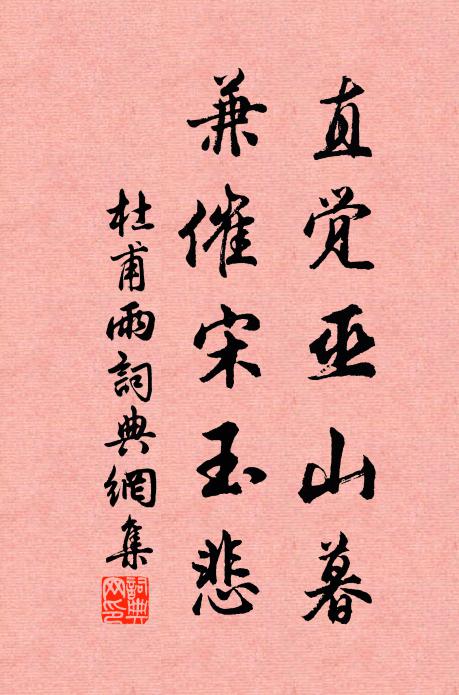 直觉巫山暮
兼催宋玉悲
杜甫雨詞典網集
詞典网印